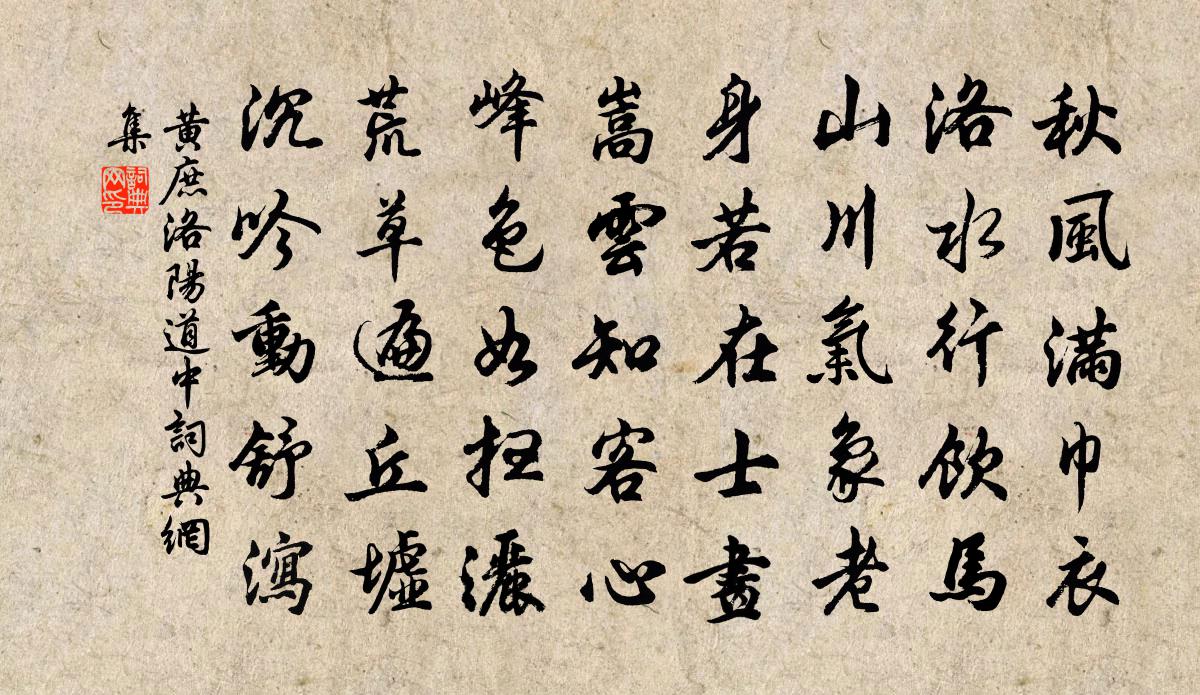 秋風滿巾衣
洛水行飲馬
山川氣象老
身若在士畫
嵩雲知客心
峰色如扫灑
荒草遍丘墟
沉吟動舒瀉
黄庶洛陽道中詞典網
集
詞典
网印